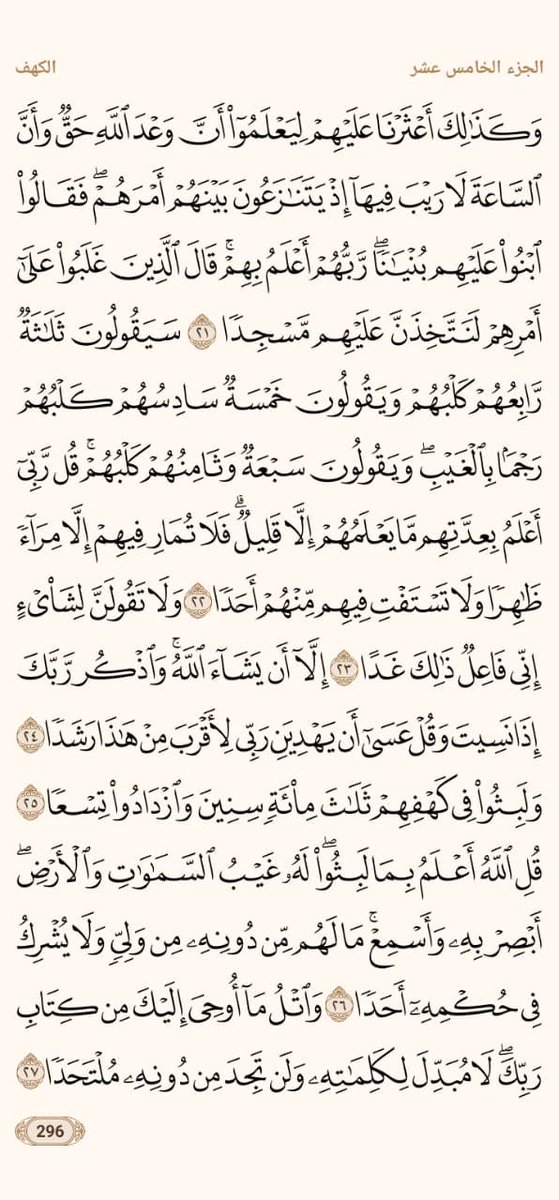 الجزء الخامس عشر
الكهف
وَكَذَٰلِكَ أَعْثَرْنَا عَلَيْهِمْ لِيَعْلَمُوٓا۟ أَنَّ وَعْدَ ٱللَّهِ حَقٌّ وَأَنَّ
ٱلسَّاعَةَ لَا رَيْبَ فِيهَآ إِذْ يَتَنَٰزَعُونَ بَيْنَهُمْ أَمْرَهُمْ ۖ فَقَالُوا۟
ٱبْنُوا۟ عَلَيْهِم بُنْيَٰنًا ۖ رَّبُّهُمْ أَعْلَمُ بِهِمْ ۚ قَالَ ٱلَّذِينَ غَلَبُوا۟ عَلَىٰٓ
أَمْرِهِمْ لَنَتَّخِذَنَّ عَلَيْهِم مَّسْجِدًا ٢١ سَيَقُولُونَ ثَلَٰثَةٌ
رَّابِعُهُمْ كَلْبُهُمْ وَيَقُولُونَ خَمْسَةٌ سَادِسُهُمْ كَلْبُهُمْ
رَجْمًۢا بِٱلْغَيْبِ ۖ وَيَقُولُونَ سَبْعَةٌ وَثَامِنُهُمْ كَلْبُهُمْ ۚ قُل رَّبِّىٓ
أَعْلَمُ بِعِدَّتِهِم مَّا يَعْلَمُهُمْ إِلَّا قَلِيلٌ ۗ فَلَا تُمَارِ فِيهِمْ إِلَّا مِرَآءً
ظَٰهِرًا وَلَا تَسْتَفْتِ فِيهِم مِّنْهُمْ أَحَدًا ٢٢ وَلَا تَقُولَنَّ لِشَا۟ىْءٍ
إِنِّى فَاعِلٌ ذَٰلِكَ غَدًا ٢٣ إِلَّآ أَن يَشَآءَ ٱللَّهُ ۚ وَٱذْكُر رَّبَّكَ
إِذَا نَسِيتَ وَقُلْ عَسَىٰٓ أَن يَهْدِيَنِ رَبِّى لِأَقْرَبَ مِنْ هَٰذَا رَشَدًا ٢٤
وَلَبِثُوا۟ فِى كَهْفِهِمْ ثَلَٰثَ مِا۟ئَةٍ سِنِينَ وَٱزْدَادُوا۟ تِسْعًا ٢٥
قُلِ ٱللَّهُ أَعْلَمُ بِمَا لَبِثُوا۟ ۖ لَهُۥ غَيْبُ ٱلسَّمَٰوَٰتِ وَٱلْأَرْضِ ۖ
أَبْصِرْ بِهِۦ وَأَسْمِعْ ۚ مَا لَهُم مِّن دُونِهِۦ مِن وَلِىٍّ وَلَا يُشْرِكُ
فِى حُكْمِهِۦٓ أَحَدًا ٢٦ وَٱتْلُ مَآ أُوحِىَ إِلَيْكَ مِن كِتَابِ
رَبِّكَ ۖ لَا مُبَدِّلَ لِكَلِمَٰتِهِۦ وَلَن تَجِدَ مِن دُونِهِۦ مُلْتَحَدًا ٢٧
296